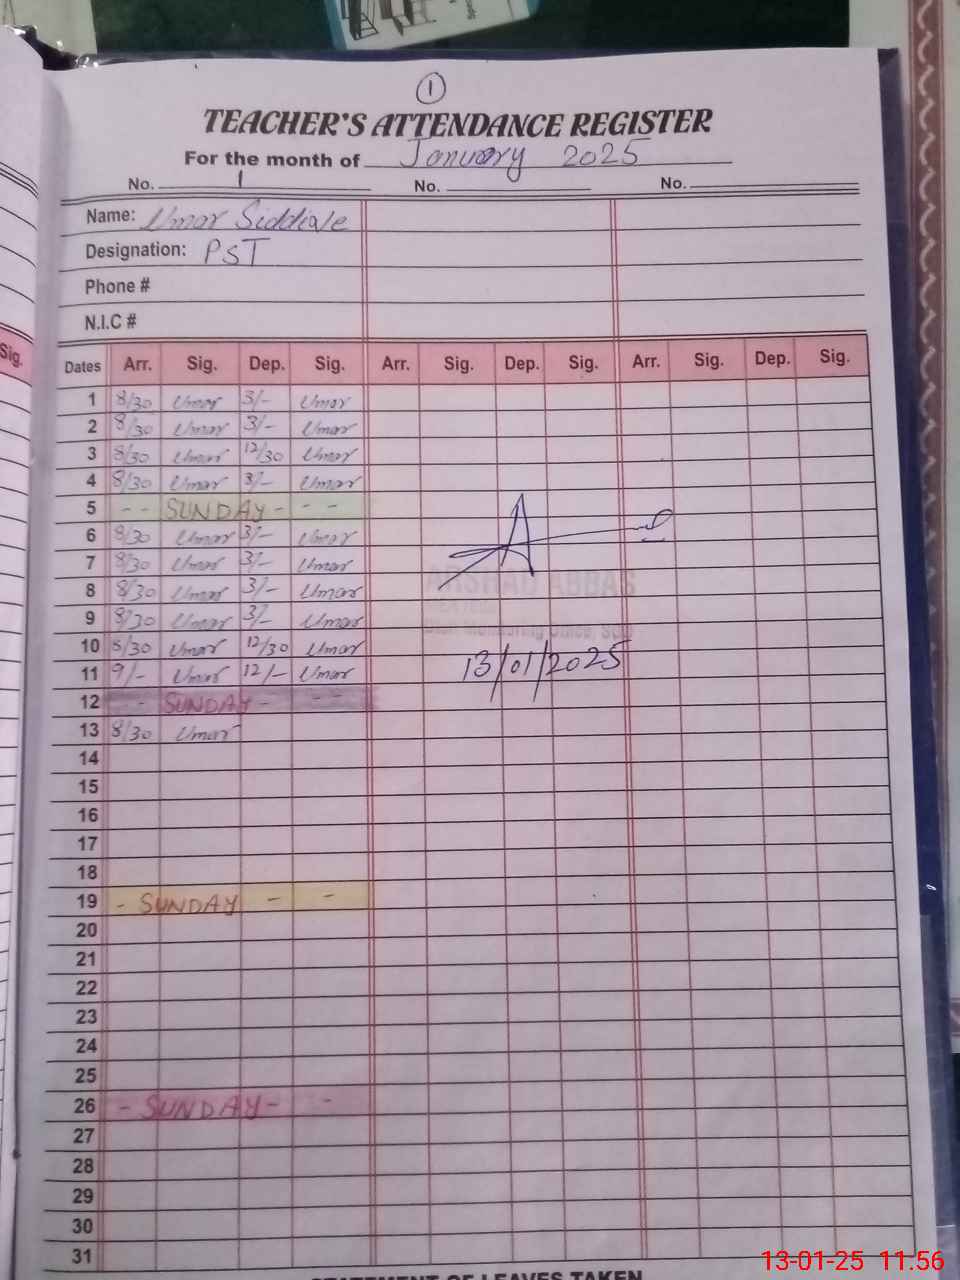 1
TEACHER'S ATTENDANCE REGISTER
For the month of January 2025
No. 1 No. No.
Name: Umar Siddique
Designation: PST
Phone #
N.I.C #
Sig.
Dates Arr. Sig. Dep. Sig. Arr. Sig. Dep. Sig. Arr. Sig. Dep. Sig.
1 8/30 Umar 3/- Umar
2 8/30 Umar 3/- Umar
3 8/30 Umar 12/30 Umar
4 8/30 Umar 3/- Umar
5 - - SUNDAY - - -
6 8/30 Umar 3/- Umar
7 8/30 Umar 3/- Umar
8 8/30 Umar 3/- Umar
ARSHAD ABBAS
9 8/30 Umar 3/- Umar
Monitoring Office,
10 8/30 Umar 12/30 Umar
11 9/- Umar 12/- Umar
13/01/2025
12 - SUNDAY - - -
13 8/30 Umar
14
15
16
17
18
19 - SUNDAY - -
20
21
22
23
24
25
26 - SUNDAY - -
27
28
29
30
31
STATEMENT OF LEAVES TAKEN
13-01-25 11.56